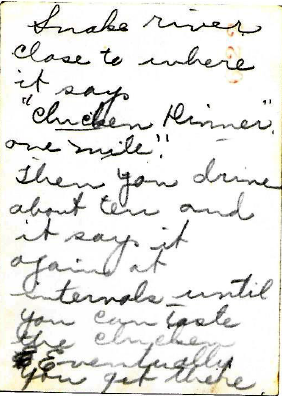 Snake river
close to where
it says
"Chicken Dinner".
one mile".
Then you drive
about ten and
it says it
again at
internals until
you can taste
the chicken
Eventually
you get there.